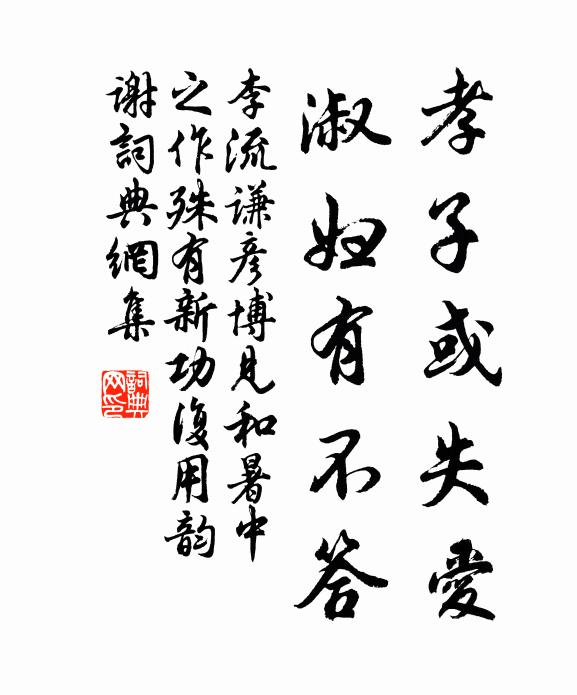 孝子或失愛
淑婦有不答
李流谦彦博見和暑中
之作殊有新功復用韵
谢詞典網集
詞典网印